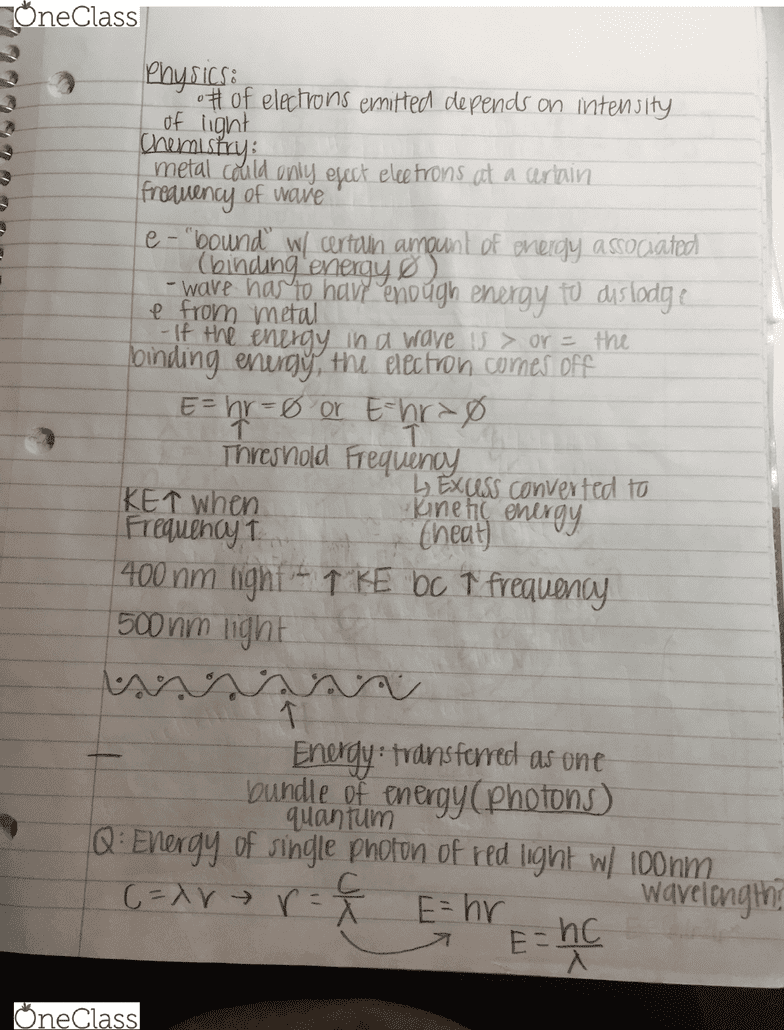 OneClass
Physics:
•# of electrons emitted depends on intensity
of light
Chemistry:
metal could only eject electrons at a certain
frequency of wave
e - "bound" w/ certain amount of energy associated
(binding energy Ø)
- wave has to have enough energy to dislodge
e from metal
- If the energy in a wave is > or = the
binding energy, the electron comes off
E = hr = Ø or E = hr > Ø
↑ ↑
Threshold Frequency
↳ Excess converted to
KE↑ when kinetic energy
Frequency↑ (heat)
400nm light - ↑ KE bc ↑ frequency
500nm light
↑
Energy: transferred as one
bundle of energy (photons)
quantum
Q: Energy of single photon of red light w/ 100nm
wavelength?
C = λr → r = C/λ E = hr
E = hC/λ
OneClass